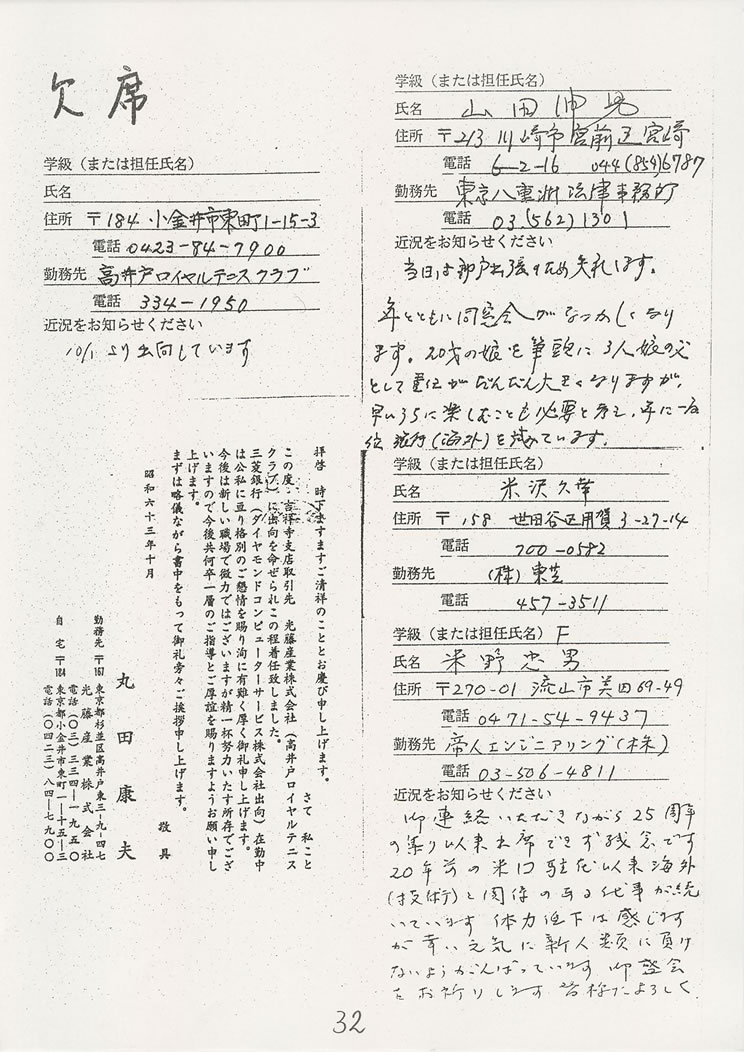 欠席
学級（または担任氏名）
氏名
住所 〒184 小金井市東町1-15-3
電話 0423-84-7900
勤務先 高井戸ロイヤルテニスクラブ
電話 334-1950
近況をお知らせください
10/1 より出向しています
拝啓 時下ますますご清祥のこととお慶び申し上げます。
さて 私こと
この度 吉祥寺支店取引先 光藤産業株式会社（高井戸ロイヤルテニス
クラブ）に出向を命ぜられこの程着任致しました。
三菱銀行（ダイヤモンドコンピューターサービス株式会社出向）在勤中
は公私に亘り格別のご懇情を賜り洵に有難く厚く御礼申し上げます。
今後は新しい職場で微力ではございますが精一杯努力いたす所存でござ
いますので今後共何卒一層のご指導とご厚誼を賜りますようお願い申し
上げます。
まずは略儀ながら書中をもって御礼旁々ご挨拶申し上げます。
敬具
昭和六十三年十月
丸田康夫
勤務先 〒167 東京都杉並区高井戸東三-九-四七
光藤産業株式会社
電話（〇三）三三四一一九五〇
自宅 〒184 東京都小金井市東町一一十五一三
電話（〇四二三）八四一七九〇〇
学級（または担任氏名）
氏名 山田伸晃
住所 〒213 川崎市宮前区宮崎
電話 6-2-16 044(854)6787
勤務先 東京八重洲法律事務所
電話 03(562)1301
近況をお知らせください
当日は神戸出張のため失礼します。
年とともに同窓会がなつかしくなり
ます。20才の娘を筆頭に3人娘の父
として責任がだんだん大きくなりますが、
早いうちに楽しむことも必要と考え、年に一度
位 旅行(海外)を試みています。
学級（または担任氏名）
氏名 米沢久幸
住所 〒158 世田谷区用賀3-27-14
電話 700-0582
勤務先 (株)東芝
電話 457-3511
学級（または担任氏名）F
氏名 米野忠男
住所 〒270-01 流山市美田69-49
電話 0471-54-9437
勤務先 帝人エンジニアリング(株)
電話 03-506-4811
近況をお知らせください
御連絡いただきながら25周年
の集り以来出席できず残念です
20年前の米国駐在以来海外
(技術)と関係のある仕事が続
いています 体力低下は感じます
が幸い元気に新人類に負け
ないようがんばっています 御盛会
をお祈りします 皆様によろしく
32